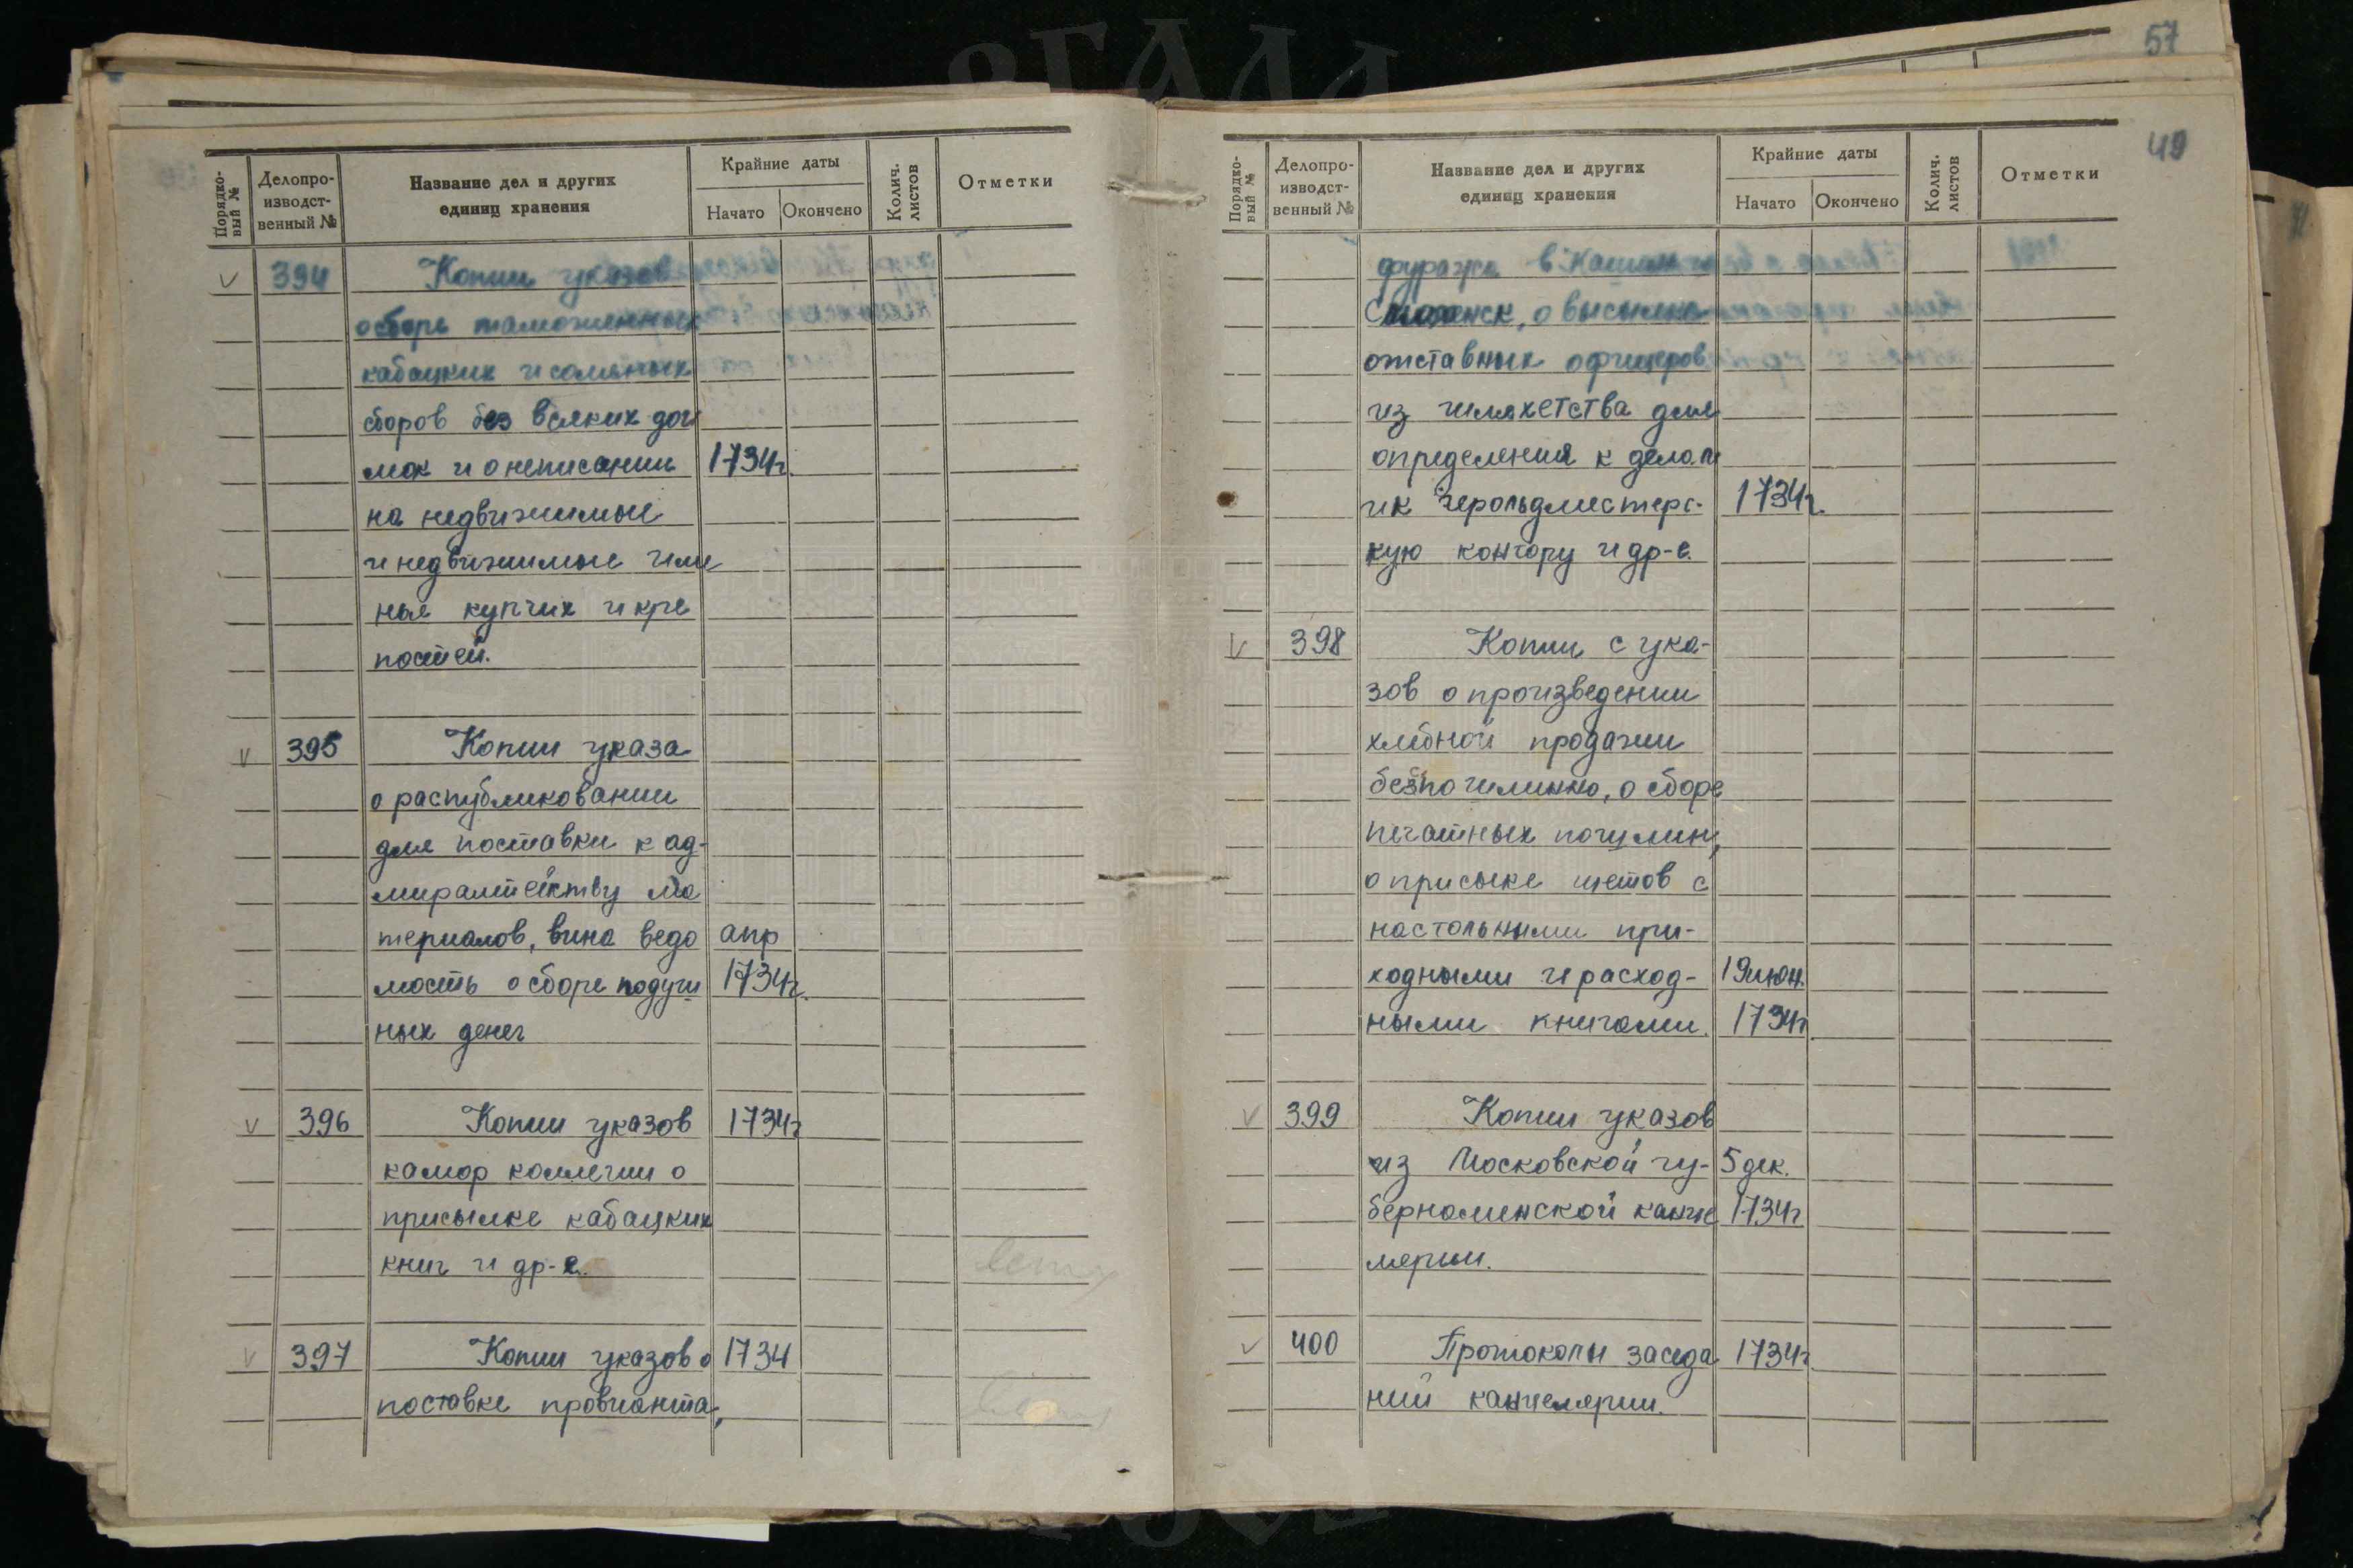 57
49
Порядко-
вый №
Делопро-
изводст-
венный №
Название дел и других
единиц хранения
Крайние даты
Начато
Окончено
Колич.
листов
Отметки
394 Копии указов
о сборе таможенных
кабацких и соляных
сборов без всяких дои
мок и о неписании 1734г.
на недвижимые
и недвижимые име
нья купчих и кре
постей.
395 Копии указа
о распубликовании
для поставки к ад-
миралтейству ма
териалов, вина ведо апр
мость о сборе подуш 1734г.
ных денег
396 Копии указов 1734г
камор коллегии о
присылке кабацких
книг и др-е.
397 Копии указов о 1734
поставке провианта,
Порядко-
вый №
Делопро-
изводст-
венный №
Название дел и других
единиц хранения
Крайние даты
Начато
Окончено
Колич.
листов
Отметки
фуража в
о высылке
отставных офицеров
из шляхетства для
определения к делам
и к герольдместерс- 1734г.
кую контору и др-е.
398 Копии с ука-
зов о произведении
хлебной продажи
безпошлинно, о сборе
печатных пошлин,
о присыке щетов с
настольными при-
ходными и расход- 19июн.
ными книгами. 1734г
399 Копии указов
из Московской гу- 5 дек.
бернаминской канце 1734г
лерии.
400 Протоколы заседа 1734г
ний канцелярии.